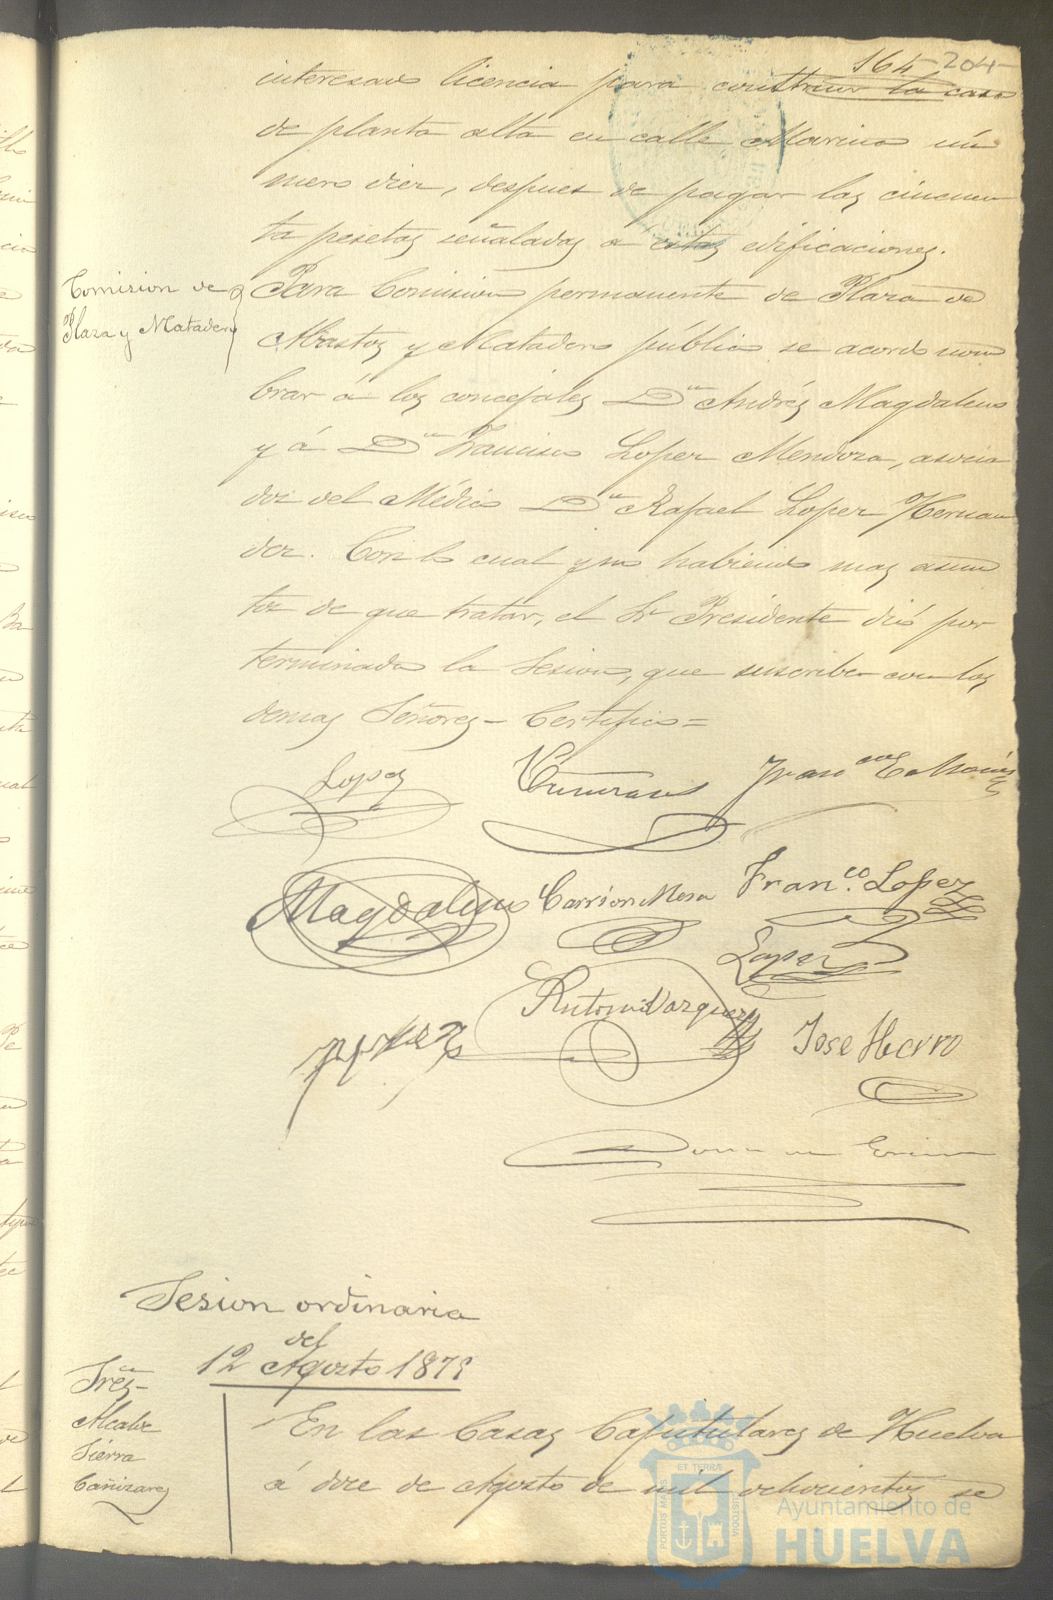 164 -204-
interesado licencia para construir la casa
de planta alta en calle Marina nú
mero diez, despues de pagar las cincuen
ta pesetas señaladas a estas edificaciones.
Comision de
Plaza y Matadero
Para Comision permanente de Plaza de
Abastos y Matadero público se acordó nom
brar á los concejales Dn Andrés Magdaleno
y á Dn Francisco Lopez Mendoza, asocia
dos del Médico Dn Rafael Lopez Hernan
dez. Con lo cual y no habiendo mas asun
tos de que tratar, el Sr Presidente dió por
terminada la Sesion, que suscribe con los
demas Señores - Certifico =
Lopez
Magdaleno Carrion Mora Franco. Lopez
Lopez
Antonio Vazquez
Jose Hierro
Sesion ordinaria
del
12 Agosto 1879
Sres-
Alcalde
Sierra
Cañizares
En las Casas Capitulares de Huelva
á doce de Agosto de mil ochocientos se
PORTUS MARIS ET TERRÆ CUSTODIA
Ayuntamiento de
HUELVA